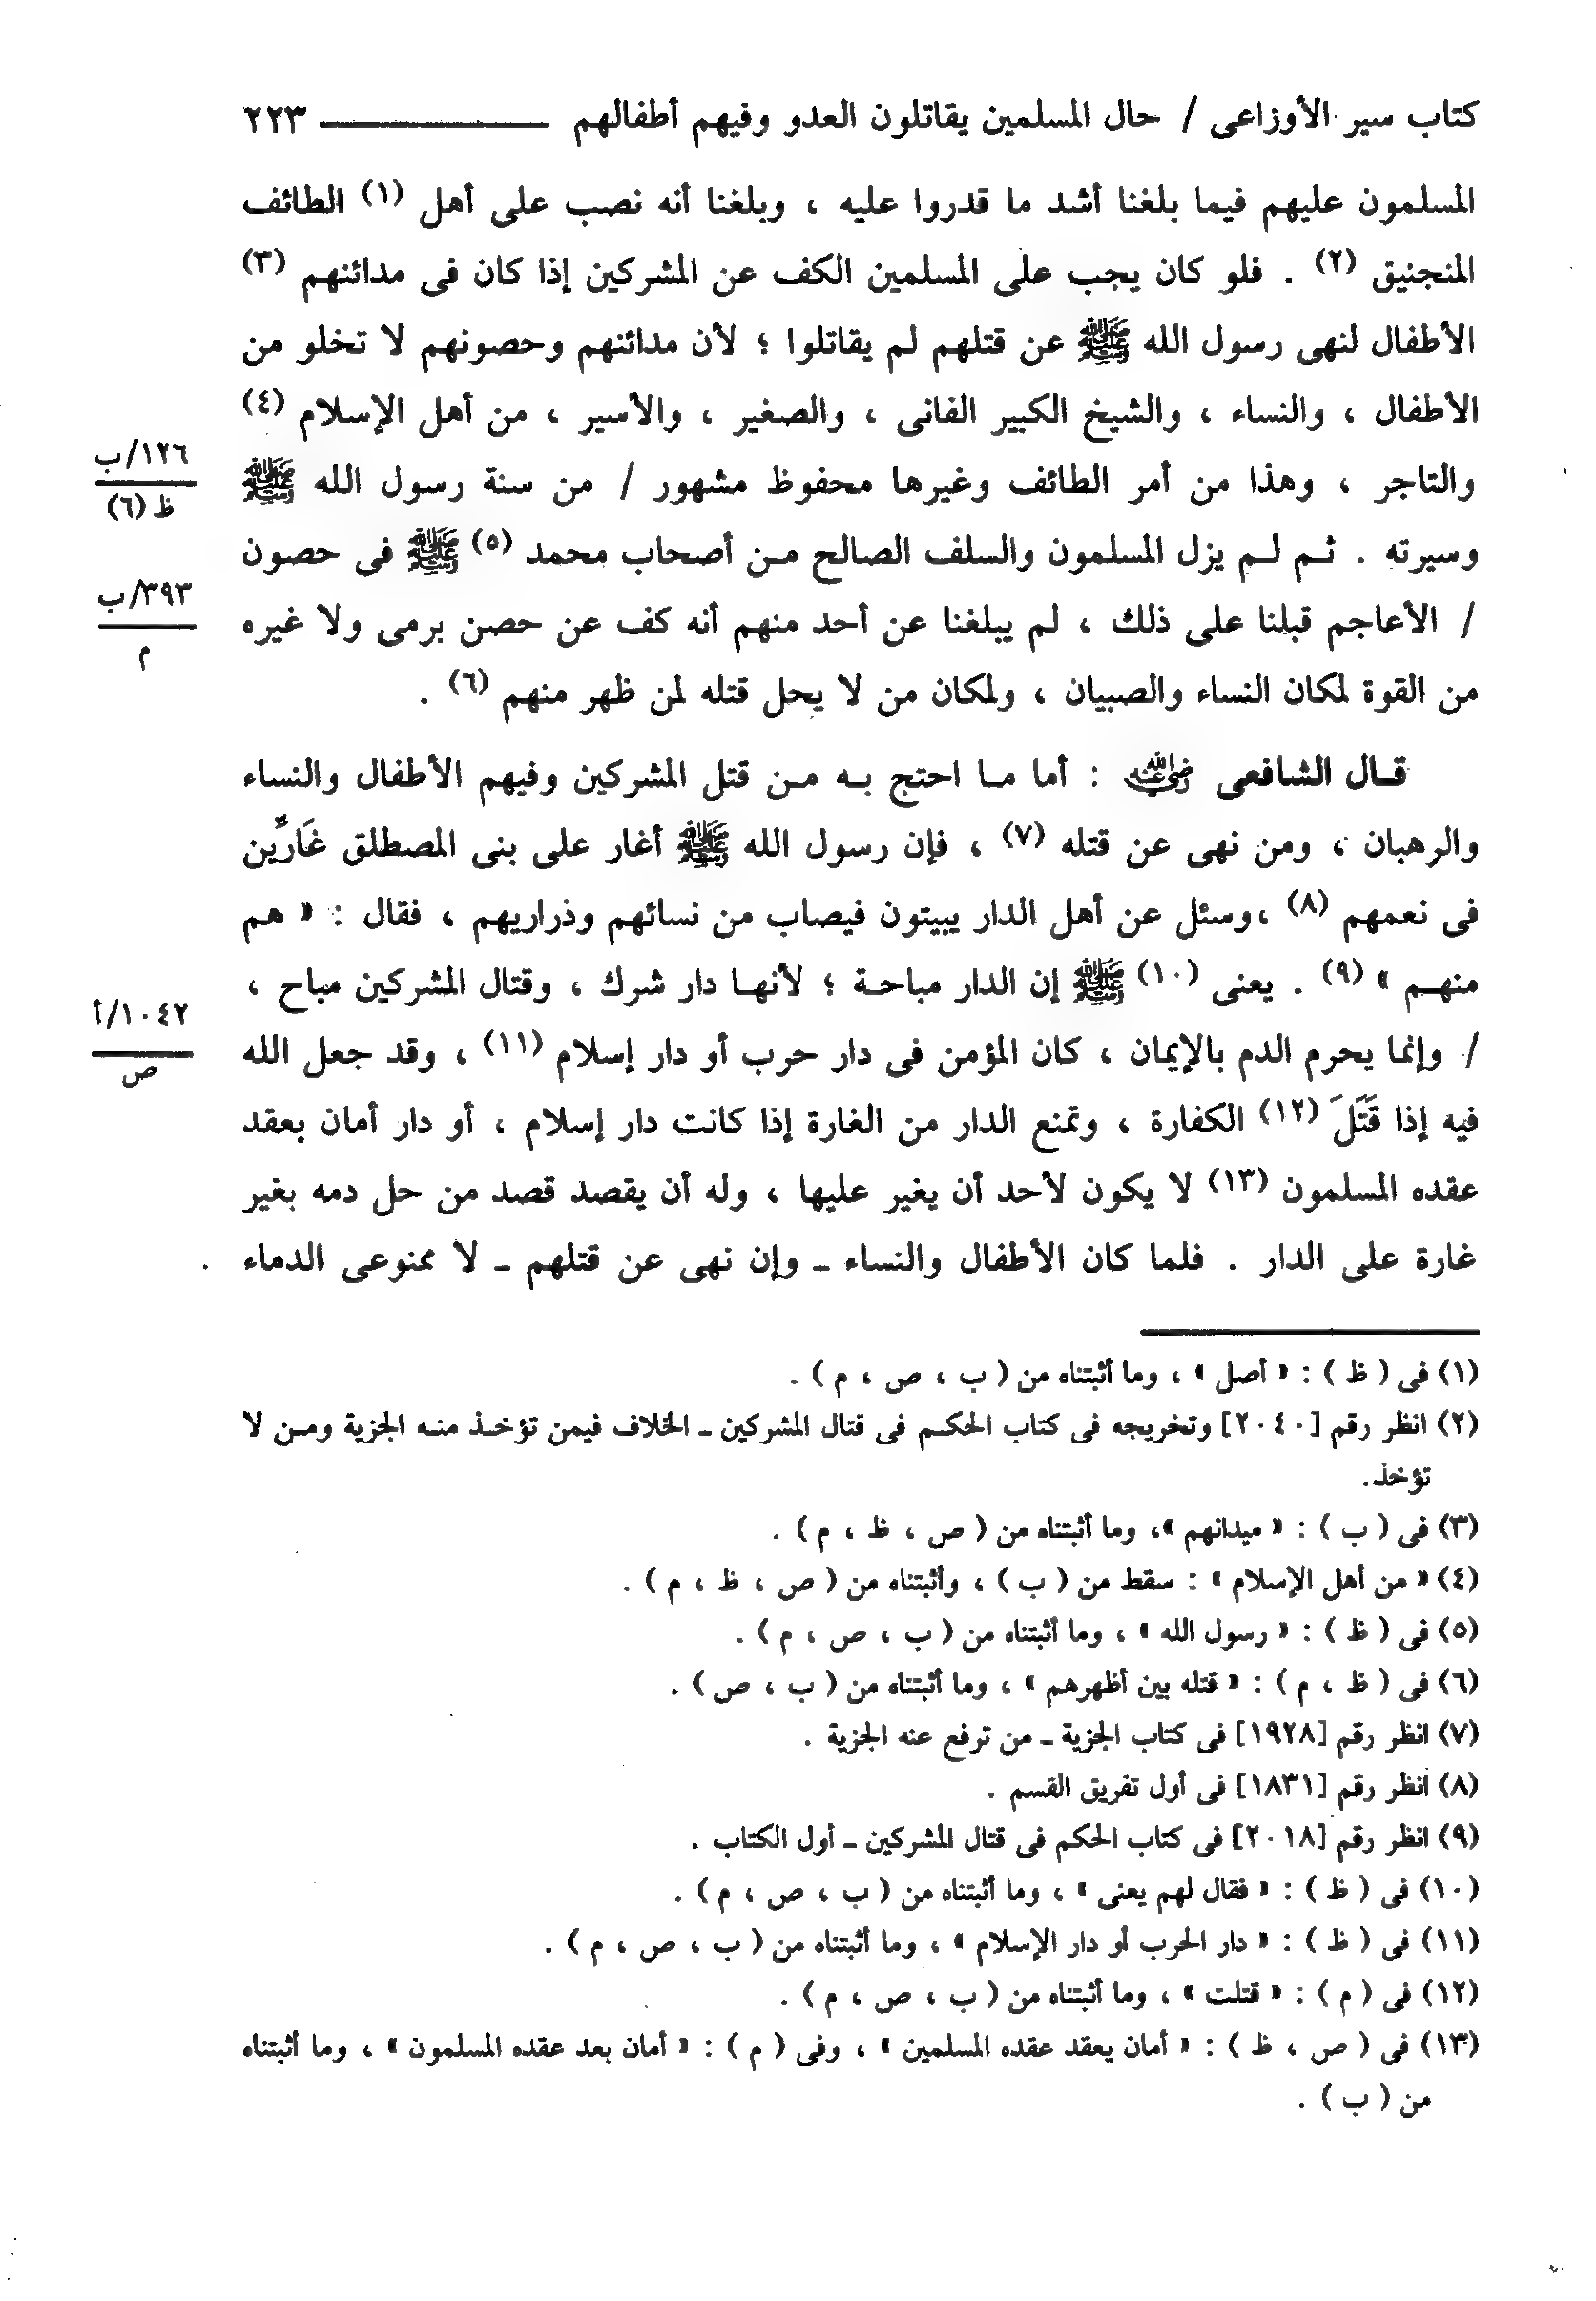 كتاب سير الأوزاعى / حال المسلمين يقاتلون العدو وفيهم أطفالهم ــــــــــ ٢٢٣
المسلمون عليهم فيما بلغنا أشد ما قدروا عليه ، وبلغنا أنه نصب على أهل (١) الطائف
المنجنيق (٢) . فلو كان يجب على المسلمين الكف عن المشركين إذا كان فى مدائنهم (٣)
الأطفال لنهى رسول الله ﷺ عن قتلهم لم يقاتلوا ؛ لأن مدائنهم وحصونهم لا تخلو من
الأطفال ، والنساء ، والشيخ الكبير الفانى ، والصغير ، والأسير ، من أهل الإسلام (٤)
١٢٦/ب
ظ (٦)
والتاجر ، وهذا من أمر الطائف وغيرها محفوظ مشهور / من سنة رسول الله ﷺ
وسيرته . ثـم لـم يزل المسلمون والسلف الصالح مـن أصحاب محمد (٥) ﷺ فى حصون
٣٩٣/ب
م
/ الأعاجم قبلنا على ذلك ، لم يبلغنا عن أحد منهم أنه كف عن حصن برمى ولا غيره
من القوة لمكان النساء والصبيان ، ولمكان من لا يحل قتله لمن ظهر منهم (٦) .
قـال الشافعى رضي الله عنه : أما مـا احتج بـه مـن قتل المشركين وفيهم الأطفال والنساء
والرهبان ، ومن نهى عن قتله (٧) ، فإن رسول الله ﷺ أغار على بنى المصطلق غَارِّين
فى نعمهم (٨) ،وسئل عن أهل الدار يبيتون فيصاب من نسائهم وذراريهم ، فقال : « هم
منهـم » (٩) . يعنى (١٠) ﷺ إن الدار مباحـة ؛ لأنهـا دار شرك ، وقتال المشركين مباح ،
١٠٤٢/أ
ص
/ وإنما يحرم الدم بالإيمان ، كان المؤمن فى دار حرب أو دار إسلام (١١) ، وقد جعل الله
فيه إذا قَتَلَ (١٢) الكفارة ، وتمنع الدار من الغارة إذا كانت دار إسلام ، أو دار أمان بعقد
عقده المسلمون (١٣) لا يكون لأحد أن يغير عليها ، وله أن يقصد قصد من حل دمه بغير
غارة على الدار . فلما كان الأطفال والنساء ـ وإن نهى عن قتلهم ـ لا ممنوعى الدماء
(١) فى ( ظ ) : « أصل » ، وما أثبتناه من ( ب ، ص ، م ) .
(٢) انظر رقم [٢٠٤٠] وتخريجه فى كتاب الحكـم فى قتال المشركين ـ الخلاف فيمن تؤخـذ منـه الجزية ومـن لا
تؤخذ.
(٣) فى ( ب ) : « ميدانهم »، وما أثبتناه من ( ص ، ظ ، م ) .
(٤) « من أهل الإسلام » : سقط من ( ب ) ، وأثبتناه من ( ص ، ظ ، م ) .
(٥) فى ( ظ ) : « رسول الله » ، وما أثبتناه من ( ب ، ص ، م ) .
(٦) فى ( ظ ، م ) : « قتله بين أظهرهم » ، وما أثبتناه من ( ب ، ص ) .
(٧) انظر رقم [١٩٢٨] فى كتاب الجزية ـ من ترفع عنه الجزية .
(٨) انظر رقم [١٨٣١] فى أول تفريق القسم .
(٩) انظر رقم [٢٠١٨] فى كتاب الحكم فى قتال المشركين ـ أول الكتاب .
(١٠) فى ( ظ ) : « فقال لهم يعنى » ، وما أثبتناه من ( ب ، ص ، م ) .
(١١) فى ( ظ ) : « دار الحرب أو دار الإسلام » ، وما أثبتناه من ( ب ، ص ، م ) .
(١٢) فى ( م ) : « قتلت » ، وما أثبتناه من ( ب ، ص ، م ) .
(١٣) فى ( ص ، ظ ) : « أمان يعقد عقده المسلمين » ، وفى ( م ) : « أمان بعد عقده المسلمون » ، وما أثبتناه
من ( ب ) .